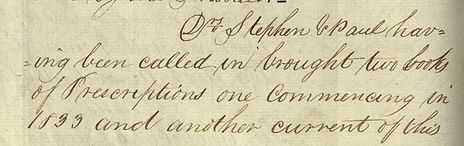 Drs Stephen & Paul hav-
-ing been called in brought two books
of Prescriptions one Commencing in
1833 and another current of this